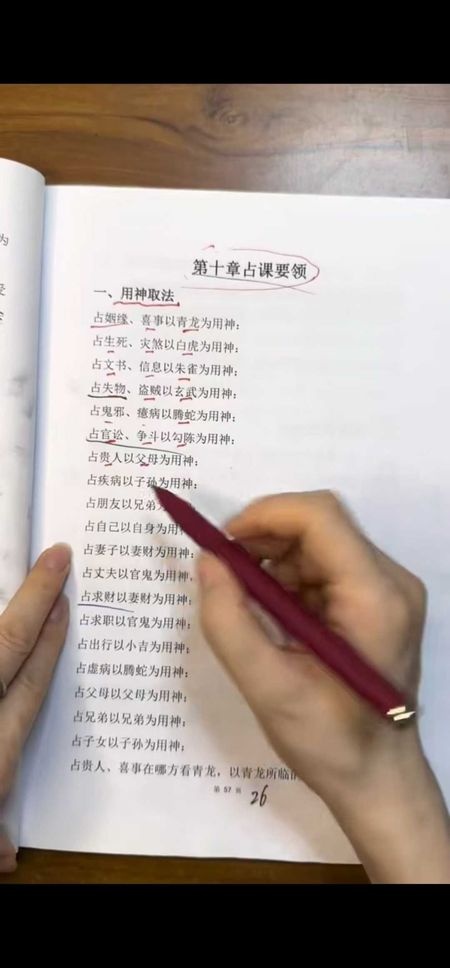 第十章占课要领
一、用神取法
占姻缘、喜事以青龙为用神；
占生死、灾煞以白虎为用神；
占文书、信息以朱雀为用神；
占失物、盗贼以玄武为用神；
占鬼邪、癔病以腾蛇为用神；
占官讼、争斗以勾陈为用神；
占贵人以父母为用神；
占疾病以子孙为用神；
占朋友以兄弟为
占自己以自身为用神
占妻子以妻财为用神；
占丈夫以官鬼为用神，
占求财以妻财为用神；
占求职以官鬼为用神；
占出行以小吉为用神；
占虚病以腾蛇为用神；
占父母以父母为用神；
占兄弟以兄弟为用神；
占子女以子孙为用神；
占贵人、喜事在哪方看青龙，以青龙所临
第 57 页
26
为